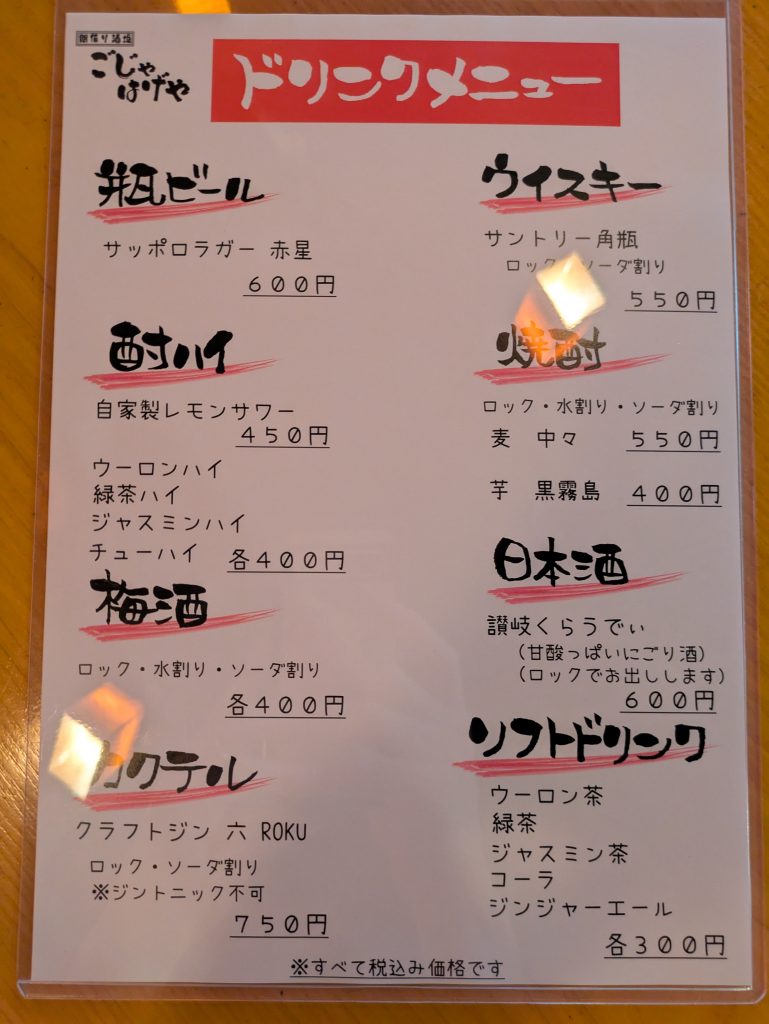 間借り酒場
ごじゃ
はげや
ドリンクメニュー
瓶ビール
サッポロラガー 赤星
600円
酎ハイ
自家製レモンサワー
450円
ウーロンハイ
緑茶ハイ
ジャスミンハイ
チューハイ 各400円
梅酒
ロック・水割り・ソーダ割り
各400円
カクテル
クラフトジン 六 ROKU
ロック・ソーダ割り
※ジントニック不可
750円
ウイスキー
サントリー角瓶
ロック・ソーダ割り
550円
焼酎
ロック・水割り・ソーダ割り
麦 中々 550円
芋 黒霧島 400円
日本酒
讃岐くらうでぃ
(甘酸っぱいにごり酒)
(ロックでお出しします)
600円
ソフトドリンク
ウーロン茶
緑茶
ジャスミン茶
コーラ
ジンジャーエール
各300円
※すべて税込み価格です